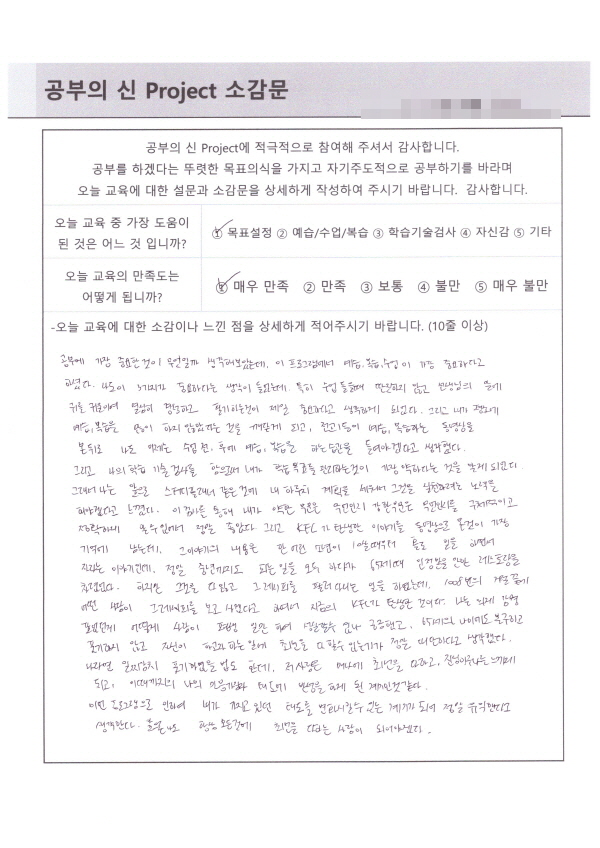 공부의 신 Project 소감문
공부의 신 Project에 적극적으로 참여해 주셔서 감사합니다.
공부를 하겠다는 뚜렷한 목표의식을 가지고 자기주도적으로 공부하기를 바라며
오늘 교육에 대한 설문과 소감문을 상세하게 작성하여 주시기 바랍니다. 감사합니다.
오늘 교육 중 가장 도움이
된 것은 어느 것 입니까?
① 목표설정 ② 예습/수업/복습 ③ 학습기술검사 ④ 자신감 ⑤ 기타
오늘 교육의 만족도는
어떻게 됩니까?
① 매우 만족 ② 만족 ③ 보통 ④ 불만 ⑤ 매우 불만
-오늘 교육에 대한 소감이나 느낀 점을 상세하게 적어주시기 바랍니다. (10줄 이상)
공부에 가장 중요한것이 무엇일까 생각해보았는데, 이 프로그램에서 예습,복습,수업이 가장 중요하다고
하셨다. 나도이 3가지가 중요하다는 생각이 들었는데, 특히 수업 들을때 딴짓하지 않고 선생님의 말에
귀를 귀울이며 열심히 필기하는것이 제일 중요하다고 생각하게 되었다. 그리고 내가 평소에
예습,복습을 많이 하지 않았었다는 것을 깨닫게 되고, 예습, 복습하는 동영상을
본뒤로 나도 이제는 수업 전, 후에 예습, 복습을 하는 습관을 들여야겠다고 생각했다.
그리고 나의 학습 기술 검사를 함으로써 내가 학습 목표를 관리하는것이 가장 약하다는 것을 알게 되었다.
그래서 나는 앞으로 스터디플래너 같은것에 내 하루치 계획을 세워서 그것을 실천하려는 노력을
해야겠다고 느꼈다. 이 검사를 통해 내가 약한 부분은 무엇인지 강한부분은 무엇인지를 구체적이고
정확하게 볼수있어서 정말 좋았다. 그리고 KFC가 탄생한 이야기를 동영상으로 본것이 가장
기억에 남는데, 그이야기의 내용은 한 어떤 소년이 10살때부터 홀로 일을 하면서
지내는 이야기인데, 정말 하는일을 모두 하다가 65세때 레스토랑을
차렸었다. 하지만 그것을 다 잃고 그 레시피를 팔러 다니는 일을 하였는데, 1008번의 거절 끝에
어떤 사람이 그레시피를 보고 사겠다고 하여서 지금의 KFC가 탄생한 것이다. 나는
어떻게 사람이 65세의 나이에도 불구하고
포기하지 않고 자신이 하고자 하는일에 최선을 다 할수 있는가가 정말 대단하다고 생각했다.
나라면 일찌감치 포기하였을 법도 한데, 저 사람은 매사에 최선을 다하고,
되고, 이때까지의 나의 마음가짐과 태도에 반성을 하게 된 계기인것같다.
이번 프로그램으로 인하여 내가 가지고 있던 태도를 변화시킬수 있는 계기가 되어 정말 유익했다고
생각한다. 앞으로 나도 항상 모든것에 최선을 다하는 사람이 되어야겠다.